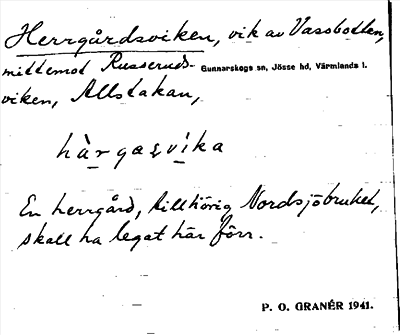 Herrgårdsviken, vik av Vassbotten,
mittemot Russeruds- Gunnarskogs sn, Jösse hd, Värmlands l.
viken, Allstakan,
hàrgas̱víka
En herrgård, tillhörig Nordsjöbruket,
skall ha legat här förr.
P. O. GRANÉR 1941.